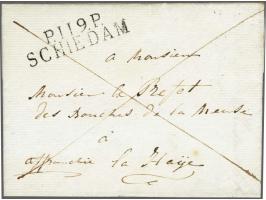 P.119.P.
SCHIEDAM
a Monsieur
Monsieur le Prefet
des Bouches de la Meuse
à
affranchie la Haÿe